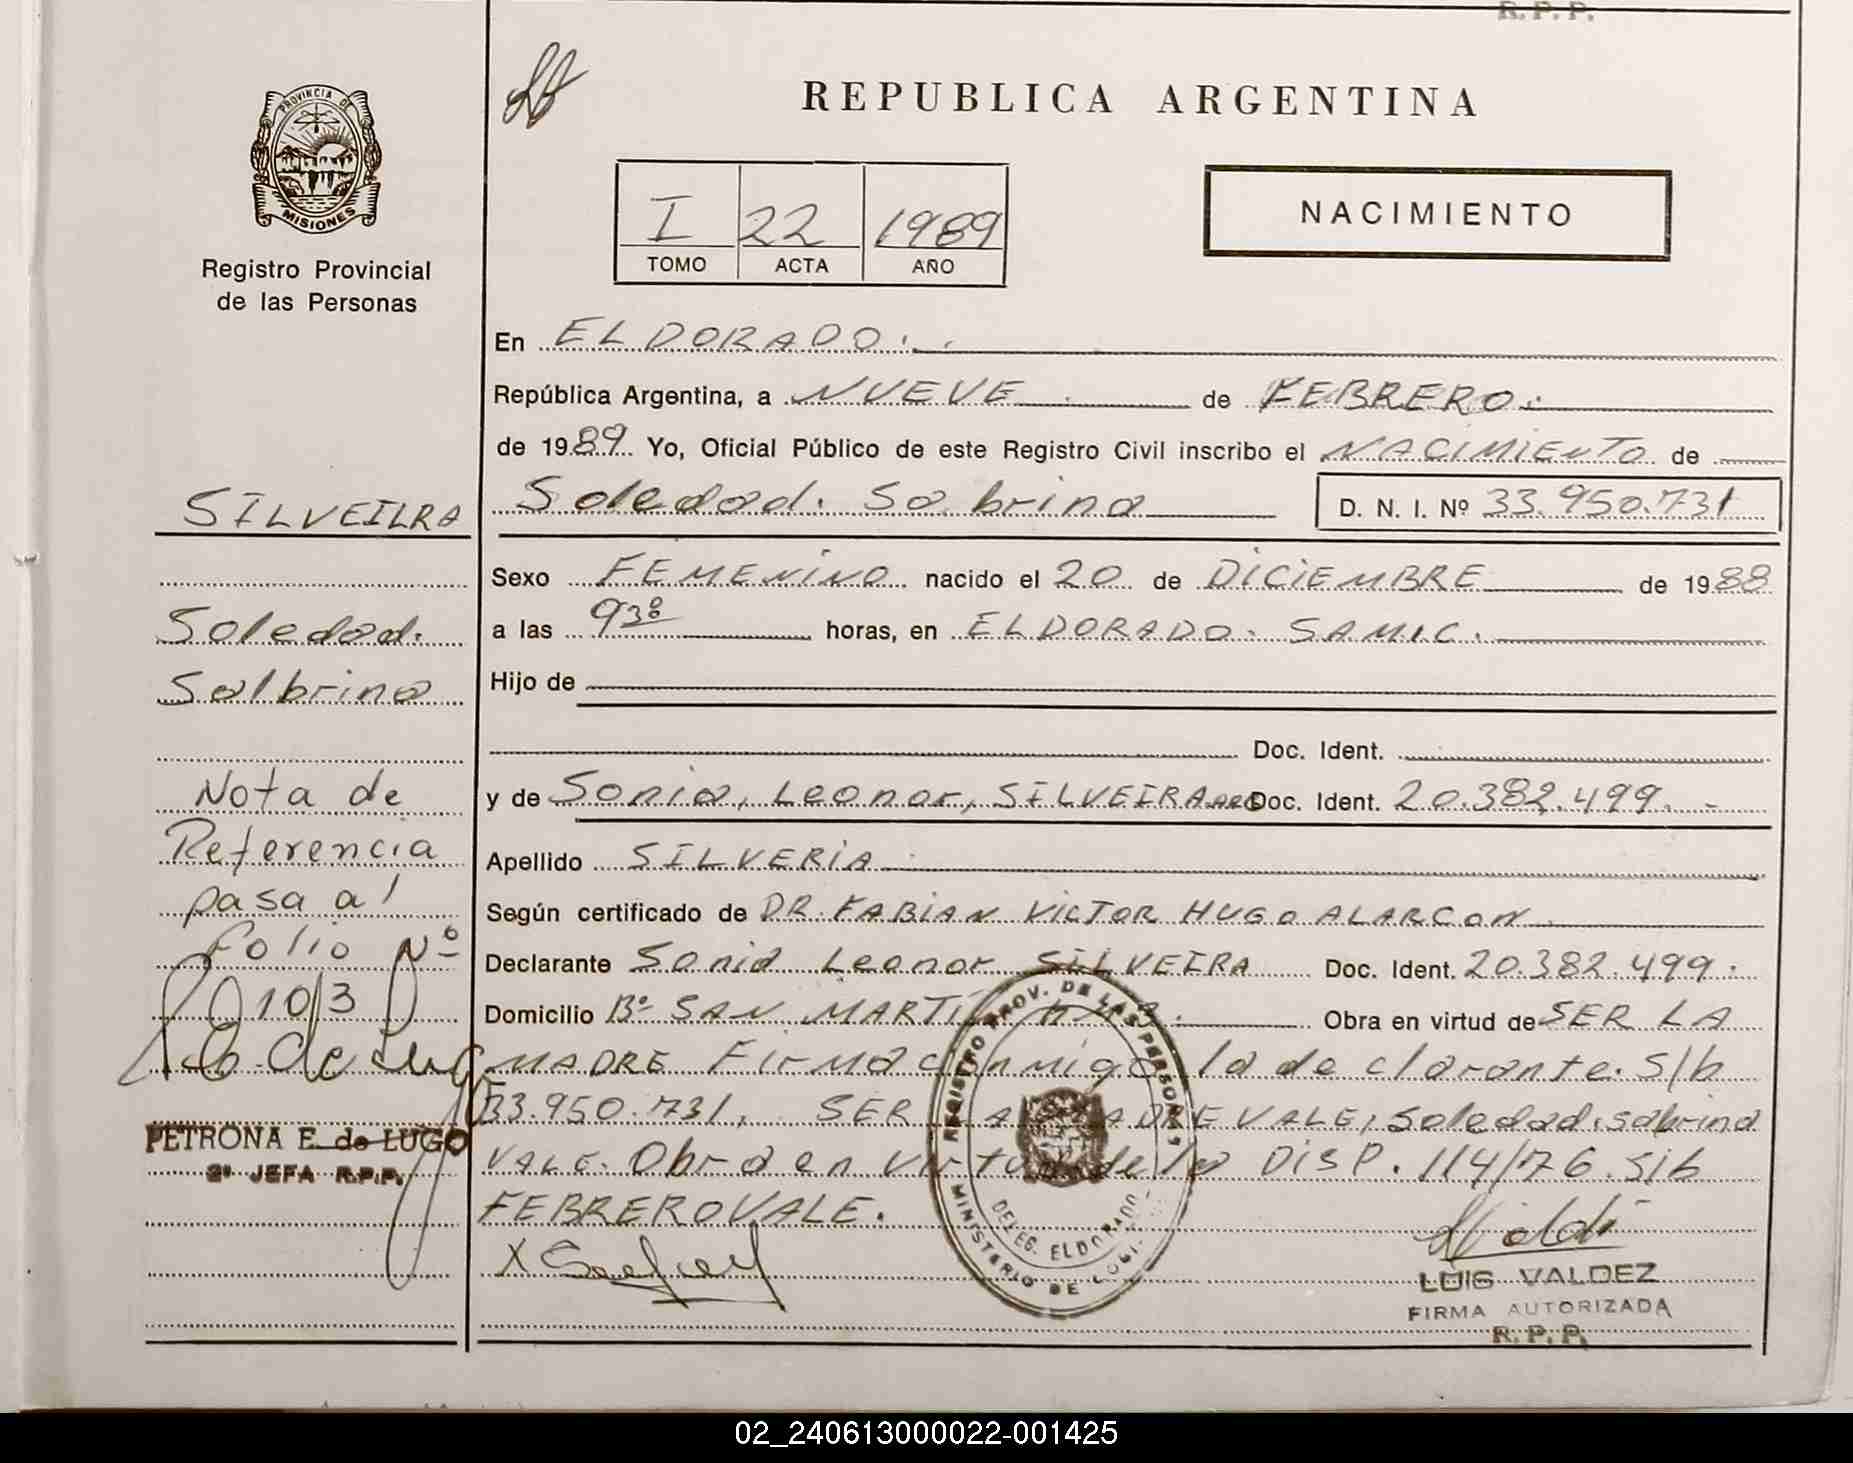 R. P. P.
REPUBLICA ARGENTINA
PROVINCIA DE
MISIONES
Registro Provincial
de las Personas
I 22 1989
TOMO ACTA AÑO
NACIMIENTO
En ELDORADO.
República Argentina, a NUEVE de FEBRERO.
de 1989 Yo, Oficial Público de este Registro Civil inscribo el NACIMIENTO de
Soledad. Sabrina D. N. I. Nº 33.950.731
Sexo FEMENINO nacido el 20 de DICIEMBRE de 1988
a las 9 30 horas, en ELDORADO. SAMIC.
Hijo de
Doc. Ident.
y de Sonia, Leonor, SILVEIRA ARG Doc. Ident. 20.382.499.
Apellido SILVERIA
Según certificado de DR. FABIAN VICTOR HUGO ALARCON
Declarante Sonia Leonor SILVEIRA Doc. Ident. 20.382.499.
Domicilio Bº SAN MARTIN Obra en virtud de SER LA
MADRE Firma conmigo la declarante. S/b
33.950.731, SER LA MADRE VALE, Soledad. Sabrina
VALE. Obra en virtud de la DISP. 114/76. S/b
FEBRERO VALE.
X
LUIS VALDEZ
FIRMA AUTORIZADA
R. P. P.
REGISTRO PROV. DE LAS PERSONAS
MINISTERIO DE GOB.
DELEG. ELDORADO
SILVEILRA
Soledad.
Salbrina
Nota de
Referencia
pasa al
folio Nº
103
PETRONA E. de LUGO
2ª JEFA R.P.P.
02_240613000022-001425